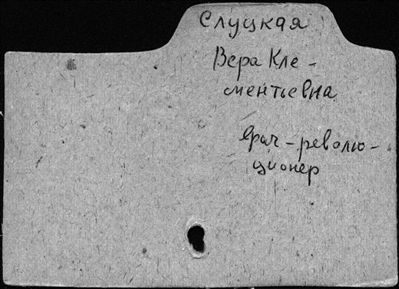 Слуцкая
Вера Кле-
ментьевна
врач-револю-
ционер